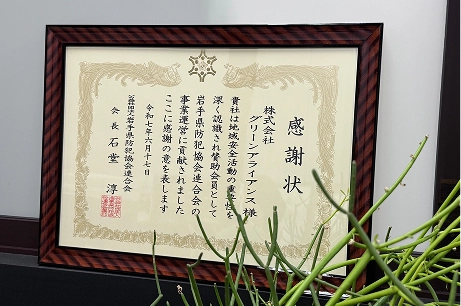 感謝状
株式会社
グリーンアライアンス 様
貴社は地域安全活動の重要性を
深く認識され賛助会員として
岩手県防犯協会連合会の
事業運営に貢献されました
ここに感謝の意を表します
令和七年六月十七日
公益社団法人岩手県防犯協会連合会
会長 石堂 淳